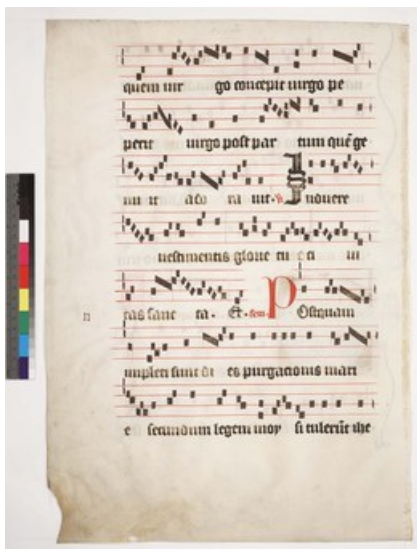 quem uir go concepit uirgo pe
perit uirgo post par tum quē ge
nu it ado ra uit. Induere
uestimentis glorie tu e ci ui
tas sanc ta. Postquam
impleti sunt di es purgacionis mari
e secundum legem moy si tulerūt ihe